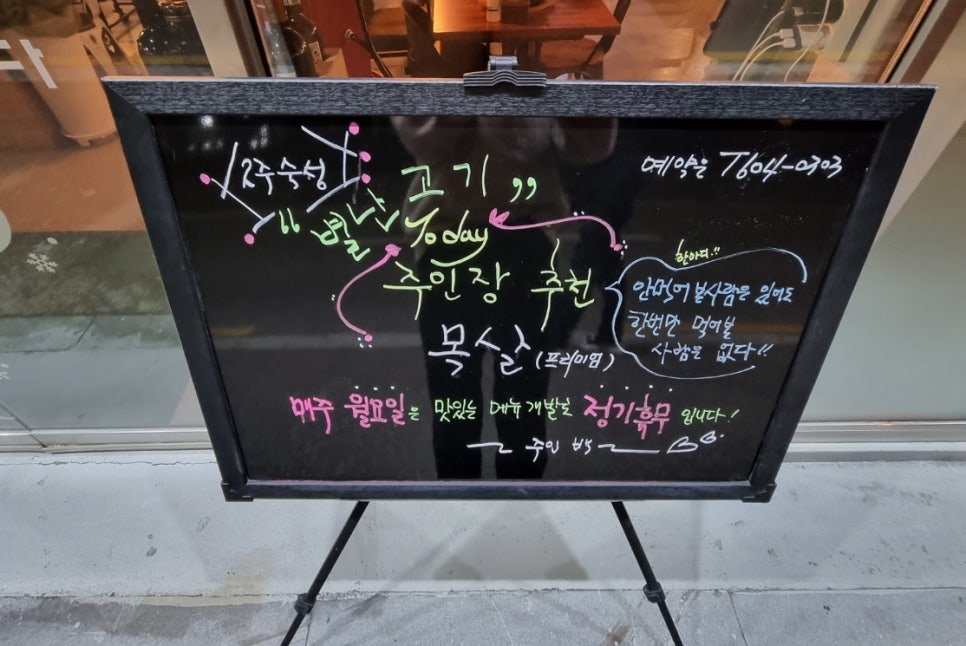 2주숙성
예약은 T.604-0303
"별난 고기"
Today
주인장 추천
한마디!!
안먹어 본사람은 있어도
한번만 먹어본
사람은 없다!!
목살 (프리미엄)
매주 월요일은 맛있는 메뉴개발로 정기휴무 입니다!
~ 주인 백 ~